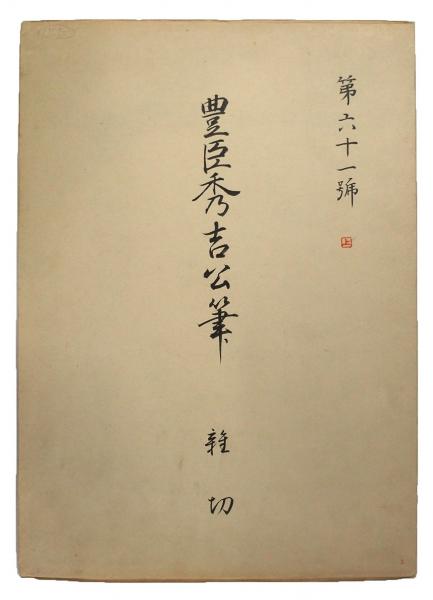 第六十一號
上
豊臣秀吉公筆
雑切